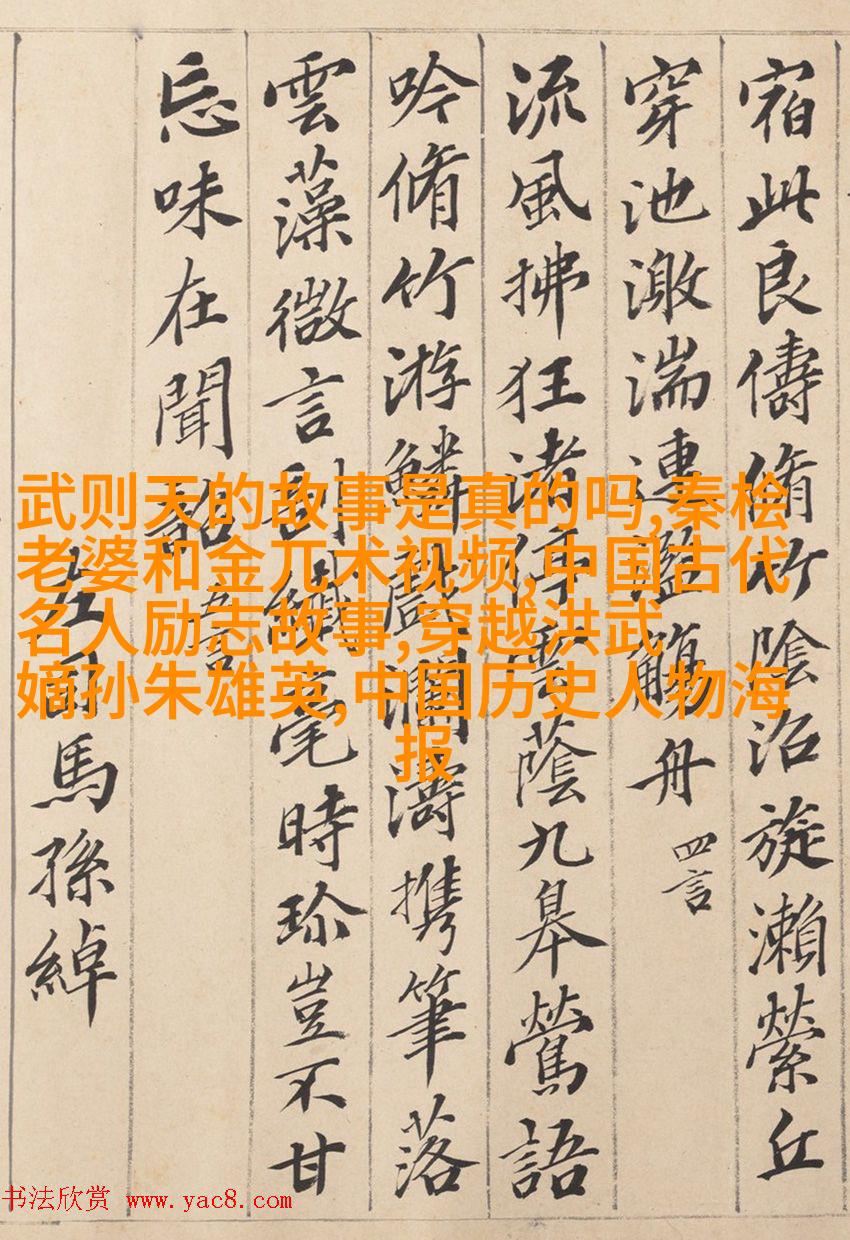 宿此良儔脩竹陰沼旋瀨縈丘
穿池激湍連濫觴舟 四言
流風拂狂渚停雲蔭九皋鶯語
吟脩竹游鱗戲瀾濤携筆落
雲藻微言剖纖毫時珍豈不甘
忘味在聞韶 五言
左司馬孫綽
武则天的故事是真的吗,秦桧
老婆和金兀术视频,中国古代
名人励志故事,穿越洪武
嫡孙朱雄英,中国历史人物海
报
书法欣赏 www.yac8.com